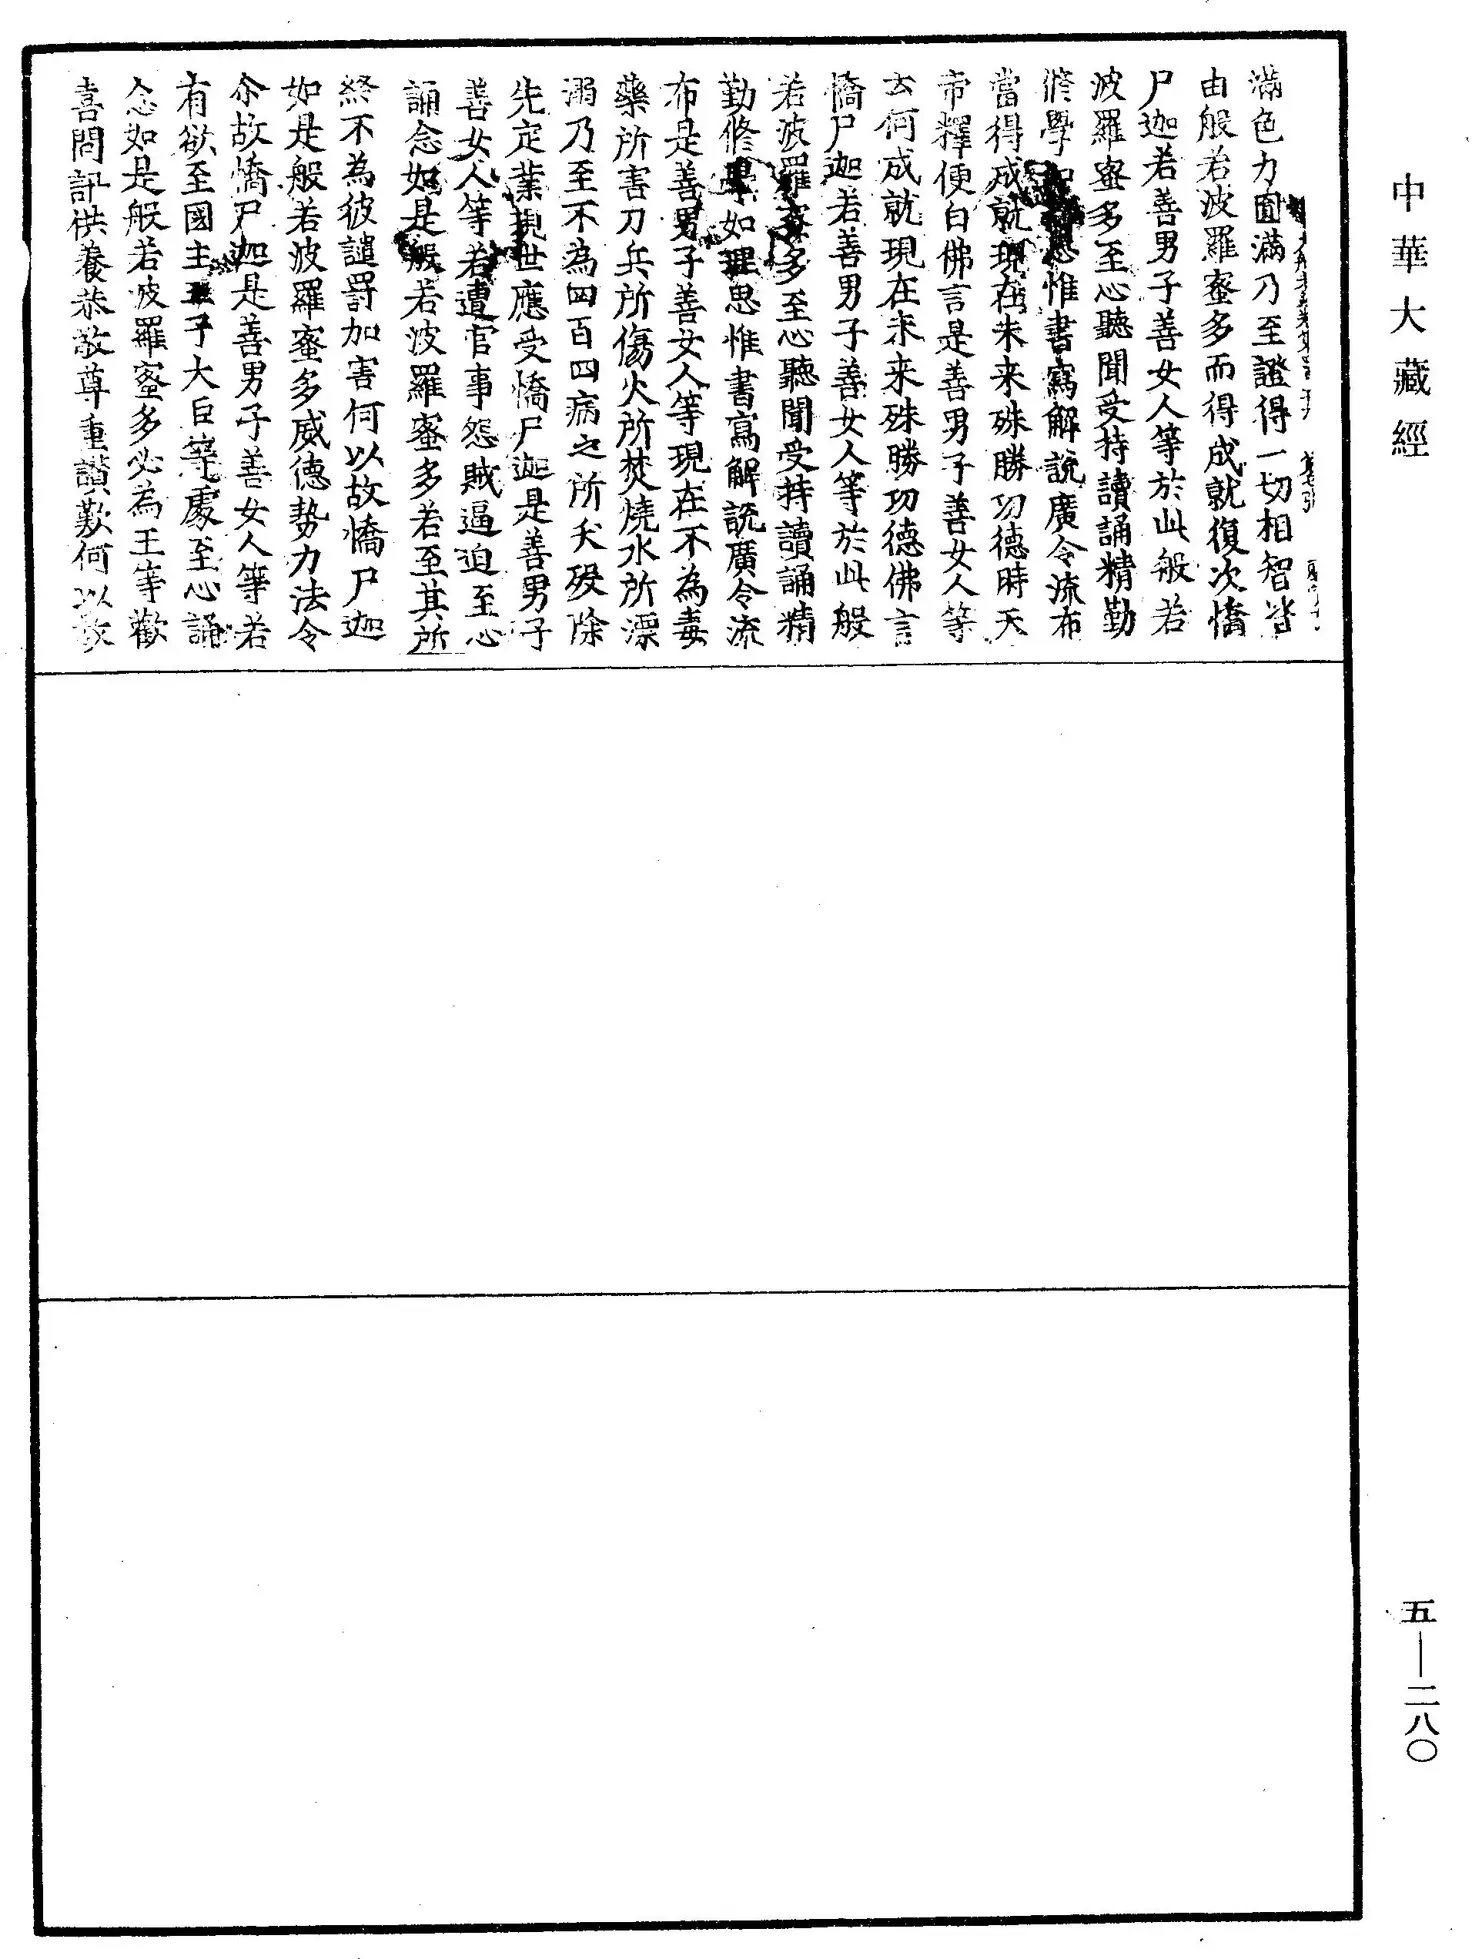 中華大藏經
滿色力圓滿乃至證得一切相智皆
由般若波羅蜜多而得成就復次憍
尸迦若善男子善女人等於此般若
波羅蜜多至心聽聞受持讀誦精勤
修學如思惟書寫解說廣令流布
當得成就現在未来殊勝功德時天
帝釋便白佛言是善男子善女人等
云何成就現在未来殊勝功德佛言
憍尸迦若善男子善女人等於此般
若波羅蜜多至心聽聞受持讀誦精
勤修學如理思惟書寫解説廣令流
布是善男子善女人等現在不為毒
藥所害刀兵所傷火所焚燒水所漂
溺乃至不為四百四病之所夭殁除
先定業現世應受憍尸迦是善男子
善女人等若遭官事怨賊逼迫至心
誦念如是般若波羅蜜多若至其所
終不為彼譴罸加害何以故憍尸迦
如是般若波羅蜜多威德勢力法令
尒故憍尸迦是善男子善女人等若
有欲至國主王子大臣等處至心誦
念如是般若波羅蜜多必為王等歡
喜問訊供養恭敬尊重讚歎何以故
五—二八〇